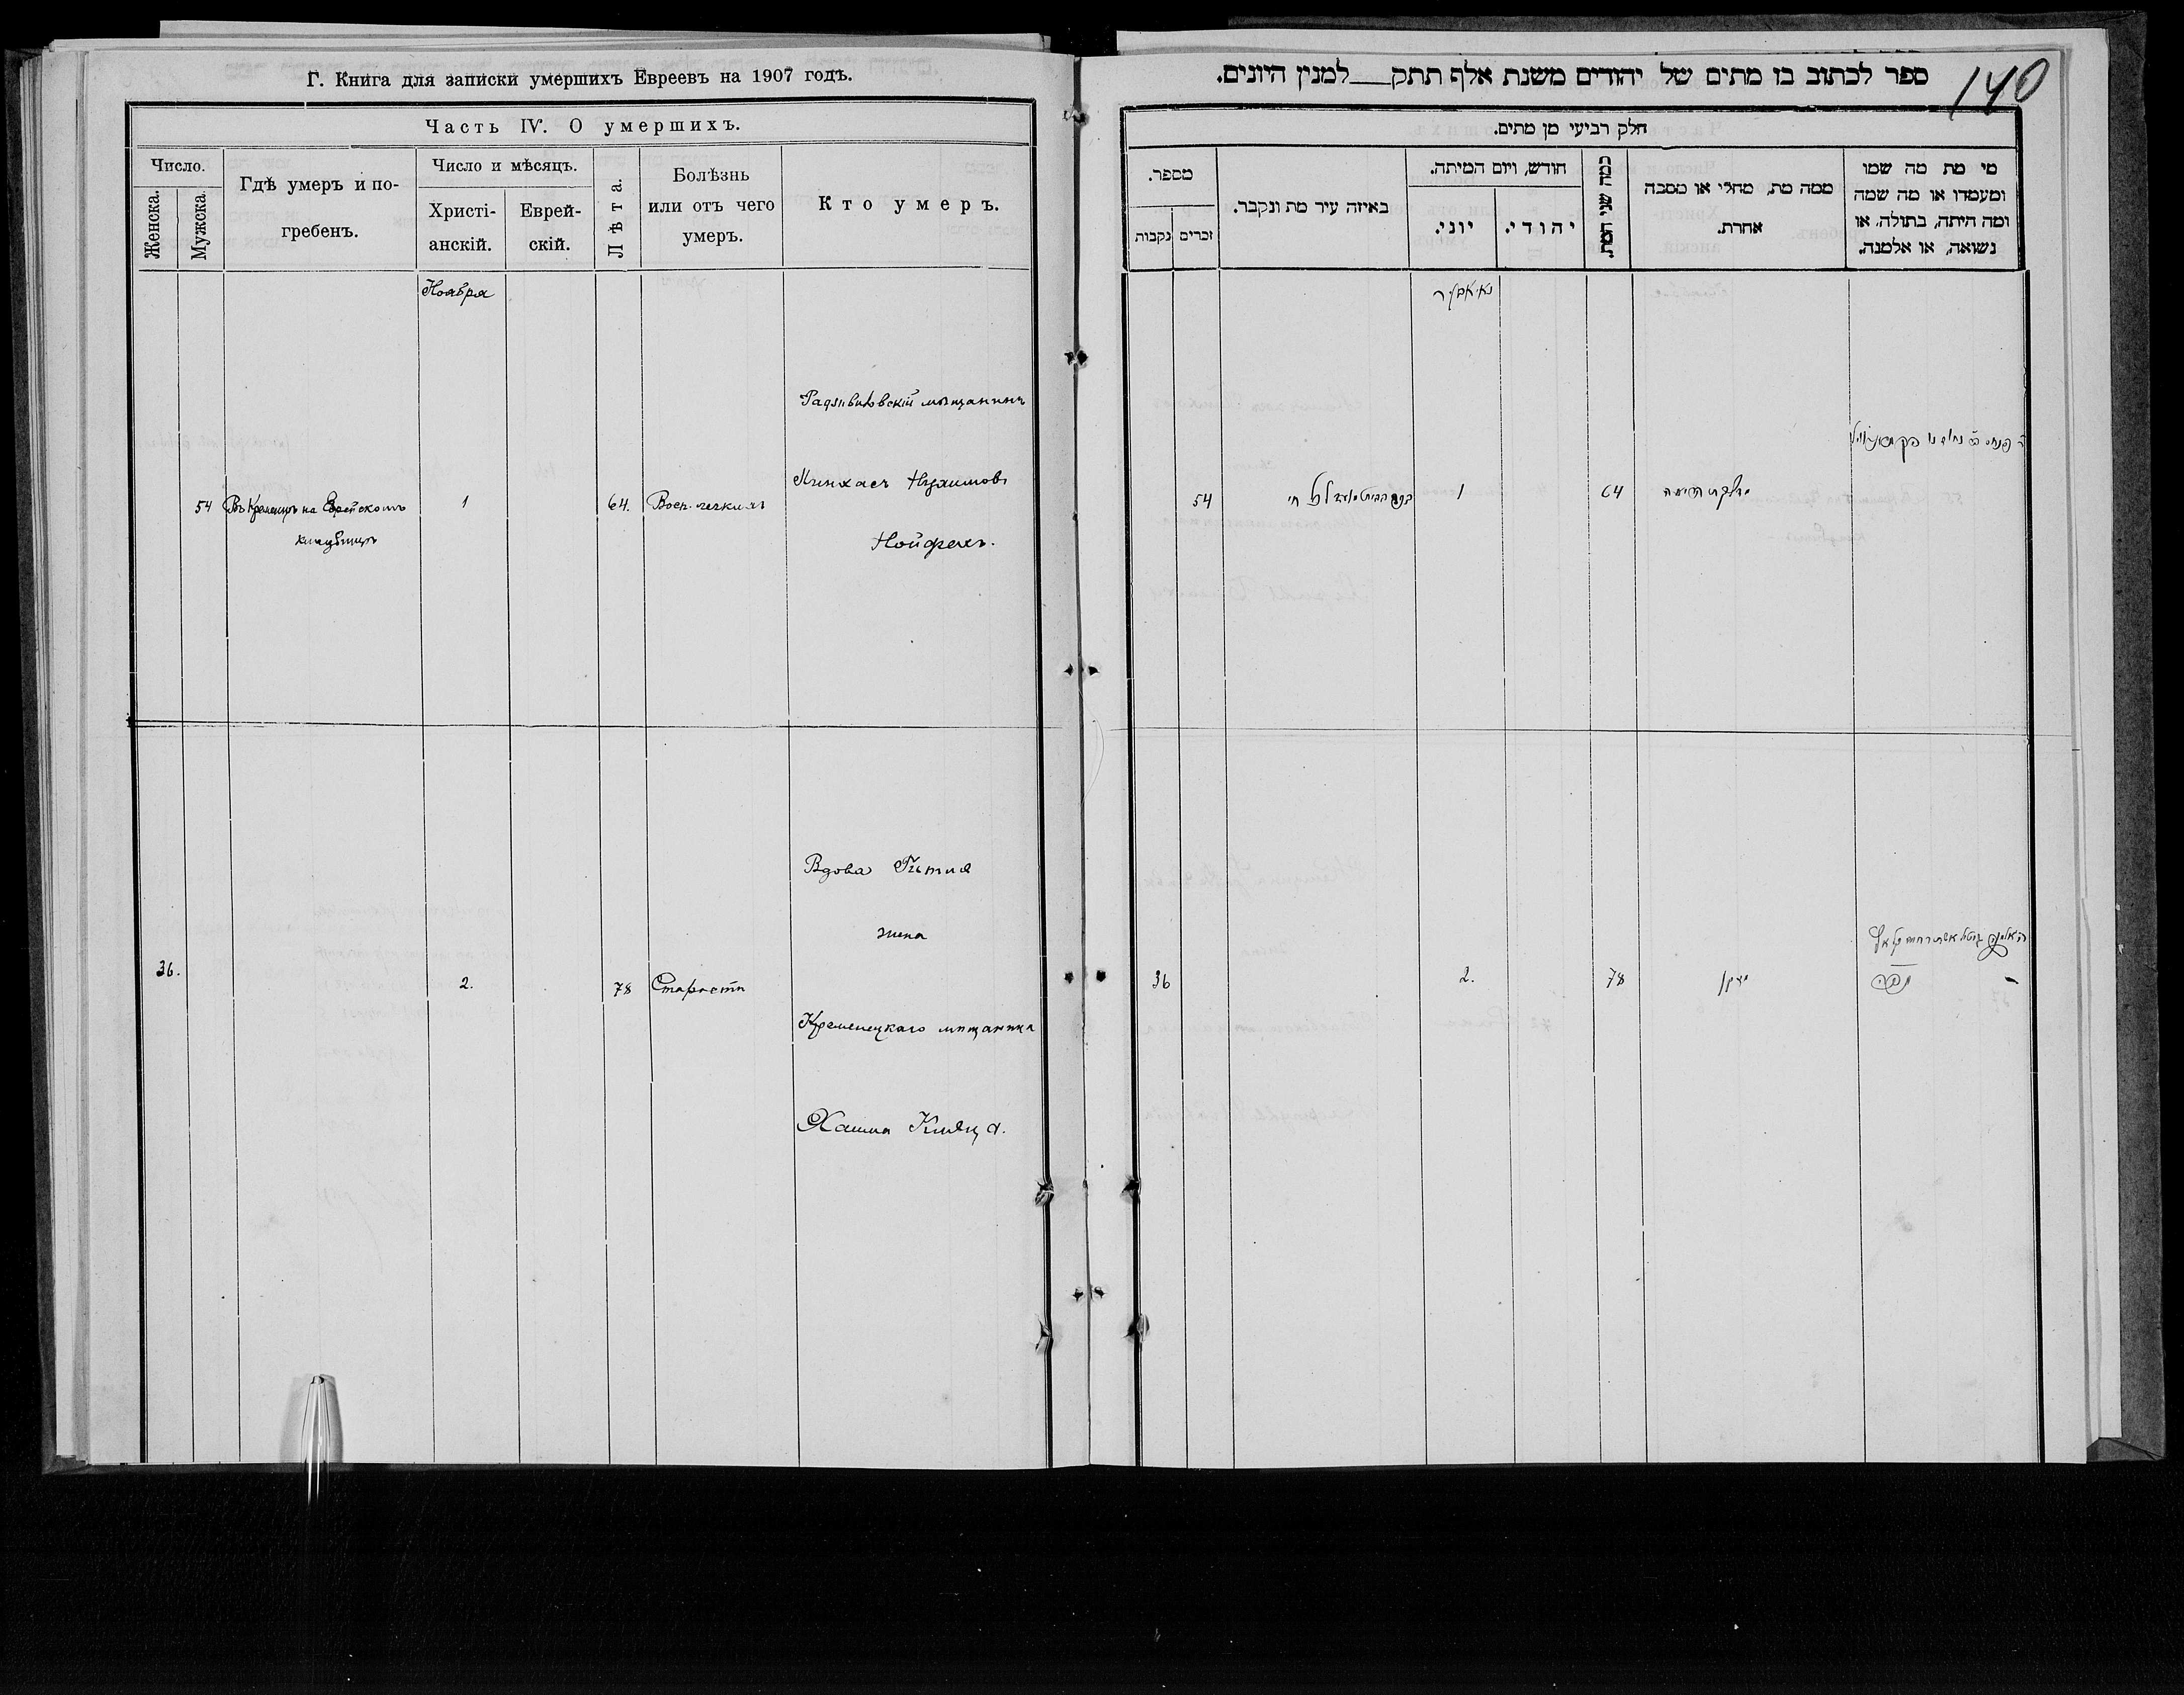 Г. Книга для записки умершихъ Евреевъ на 1907 годъ.
Часть IV. О умершихъ.
Число.
Женска.
Мужска.
Гдѣ умеръ и по-
гребенъ.
Число и мѣсяцъ.
Христі-
анскій.
Еврей-
скій.
Лѣта.
Болѣзнь
или отъ чего
умеръ.
Кто умеръ.
Ноября
54
Въ Кременцѣ на Еврейскомъ
кладбищѣ
1
64.
Восп. легкихъ
Радзивиловскій мѣщанинъ
Пинхасъ
Нойфехъ.
36.
2.
78
Старости
Вдова
жена
Кременецкаго мѣщанина
Хаима
ספר לכתוב בו מתים של יהודים משנת אלף תתק למנין היונים.
140
חלק רביעי מן מתים.
מספר.
נקבות
זכרים
באיזה עיר מת ונקבר.
חודש, ויום המיתה.
יוני.
יהודי.
כמה שני המת.
ממה מת, מחלי או מסבה
אחרת.
מי מת מה שמו
ומעמדו או מה שמה
ומה היתה, בתולה, או
נשואה, או אלמנה.
54
1
64
36
2.
78